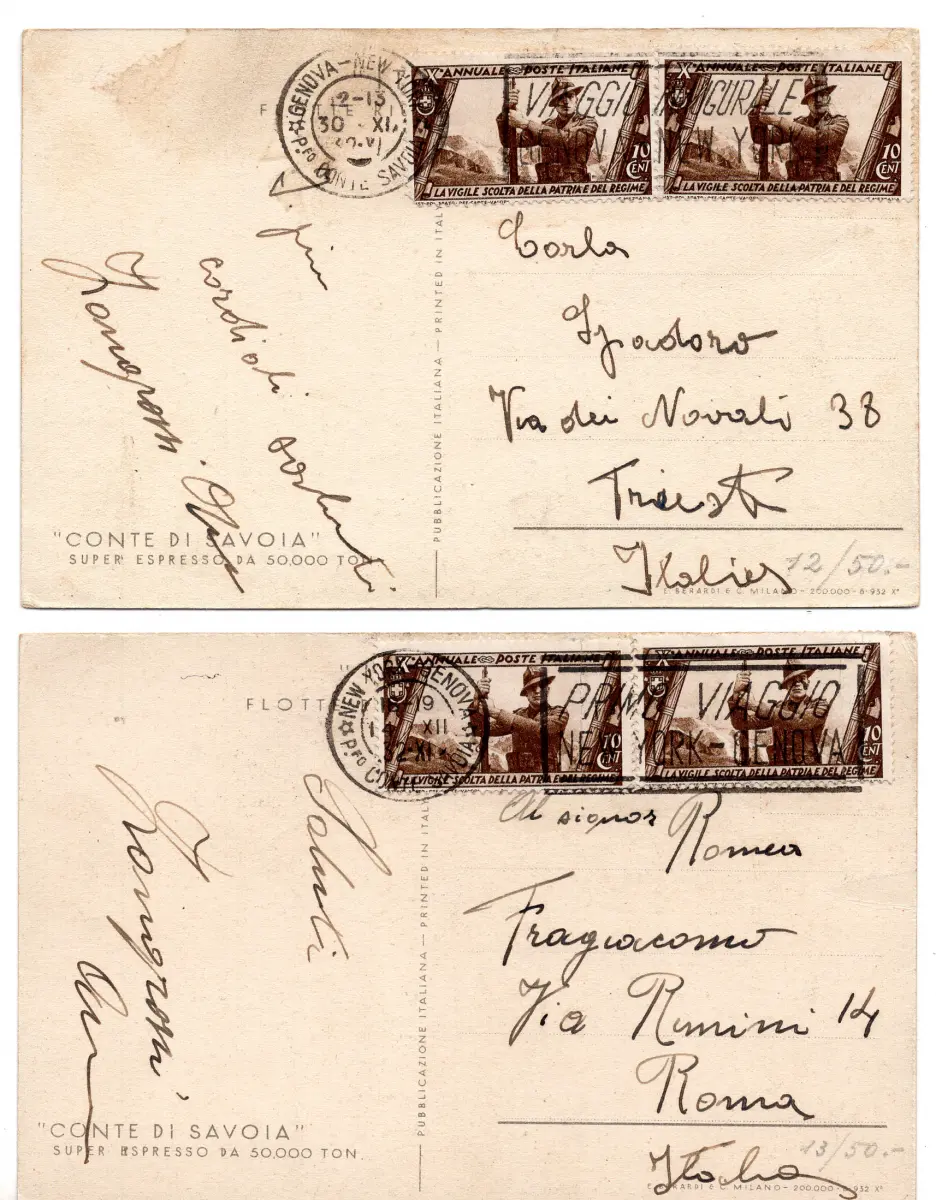 GENOVA-NEW YORK
12-13
30 XI
32-XI
Pfo CONTE SAVOIA
VIAGGIO INAUGURALE
GENOVA NEW YORK
X° ANNUALE POSTE ITALIANE
10 CENT
LA VIGILE SCOLTA DELLA PATRIA E DEL REGIME
X° ANNUALE POSTE ITALIANE
10 CENT
LA VIGILE SCOLTA DELLA PATRIA E DEL REGIME
I più
cordiali saluti
Carla
Spadoro
Via dei Navali 38
Trieste
Italien
PUBBLICAZIONE ITALIANA — PRINTED IN ITALY
"CONTE DI SAVOIA"
SUPER ESPRESSO DA 50.000 TON.
12/50.-
E. BERARDI E C. MILANO - 200.000 - 8-932 X°
FLOTTE
NEW YORK GENOVA
19
14 XII
32-XI
Pfo CONTE SAVOIA
PRIMO VIAGGIO
NEW YORK-GENOVA
X° ANNUALE POSTE ITALIANE
LA VIGILE SCOLTA DELLA PATRIA E DEL REGIME
10 CENT
X° ANNUALE POSTE ITALIANE
LA VIGILE SCOLTA DELLA PATRIA E DEL REGIME
10 CENT
Saluti
Al signor Romeo
Fragiacomo
Via Rimini 14
Roma
Italia
PUBBLICAZIONE ITALIANA — PRINTED IN ITALY
"CONTE DI SAVOIA"
SUPER ESPRESSO DA 50.000 TON.
13/50.-
E. BERARDI E C. MILANO - 200.000 - 8-932 X°